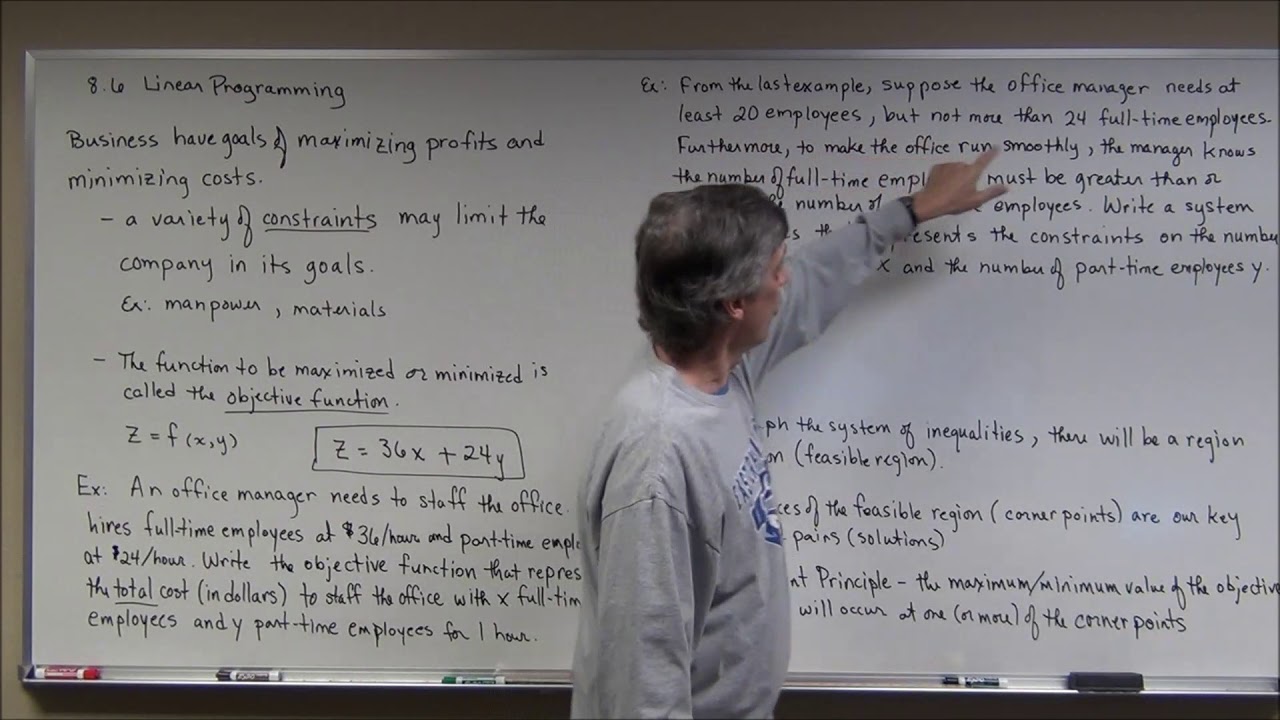 8.6 Linear Programming
Business have goals of maximizing profits and
minimizing costs.
- a variety of constraints may limit the
company in its goals.
Ex: manpower, materials
- The function to be maximized or minimized is
called the objective function.
Z = f(x,y)
Z = 36x + 24y
Ex: An office manager needs to staff the office.
hires full-time employees at $36/hour and part-time
at $24/hour. Write the objective function that
the total cost (in dollars) to staff the office with x
employees and y part-time employees for 1 hour.
Ex: From the last example, suppose the office manager needs at
least 20 employees, but not more than 24 full-time employees.
Furthermore, to make the office run smoothly, the manager knows
the number of full-time must be greater than or
number of employees. Write a system
the constraints on the number
x and the number of part-time employees y.
the system of inequalities, there will be a region
(feasible region).
of the feasible region (corner points) are our key
pairs (solutions)
Principle - the maximum/minimum value of the objective
will occur at one (or more) of the corner points